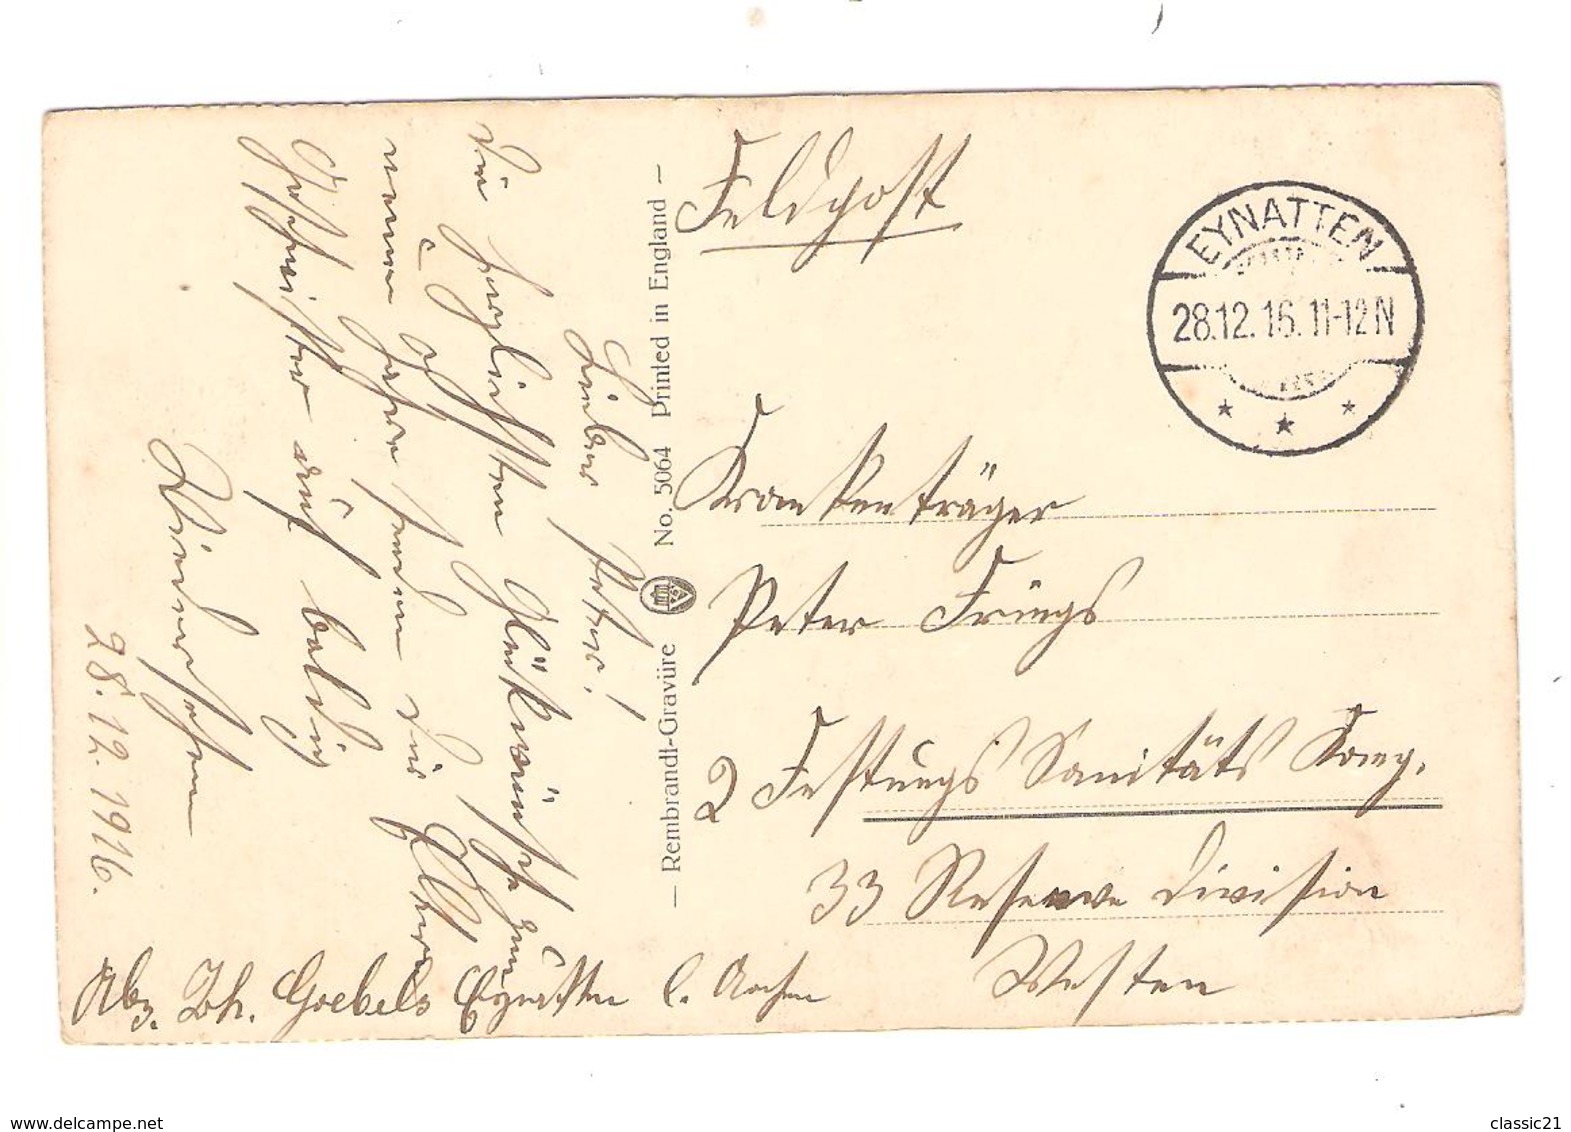 Feldpost
EYNATTEN
28.12.16. 11-12 N
Krankenträger
Peter Frings
2 Festungs Sanitäts Komp.
33 Reserve Division
Westen
— Rembrandt-Gravüre No. 5064 Printed in England —
Lieber Peter!
Die herzlichsten Glückwünsche zum
neuen Jahre senden dir Eltern
Geschwister auf baldig
Wiedersehen
28.12.1916.
Abz. Joh. Goebels Eynatten b. Aachen
www.delcampe.net
classic21